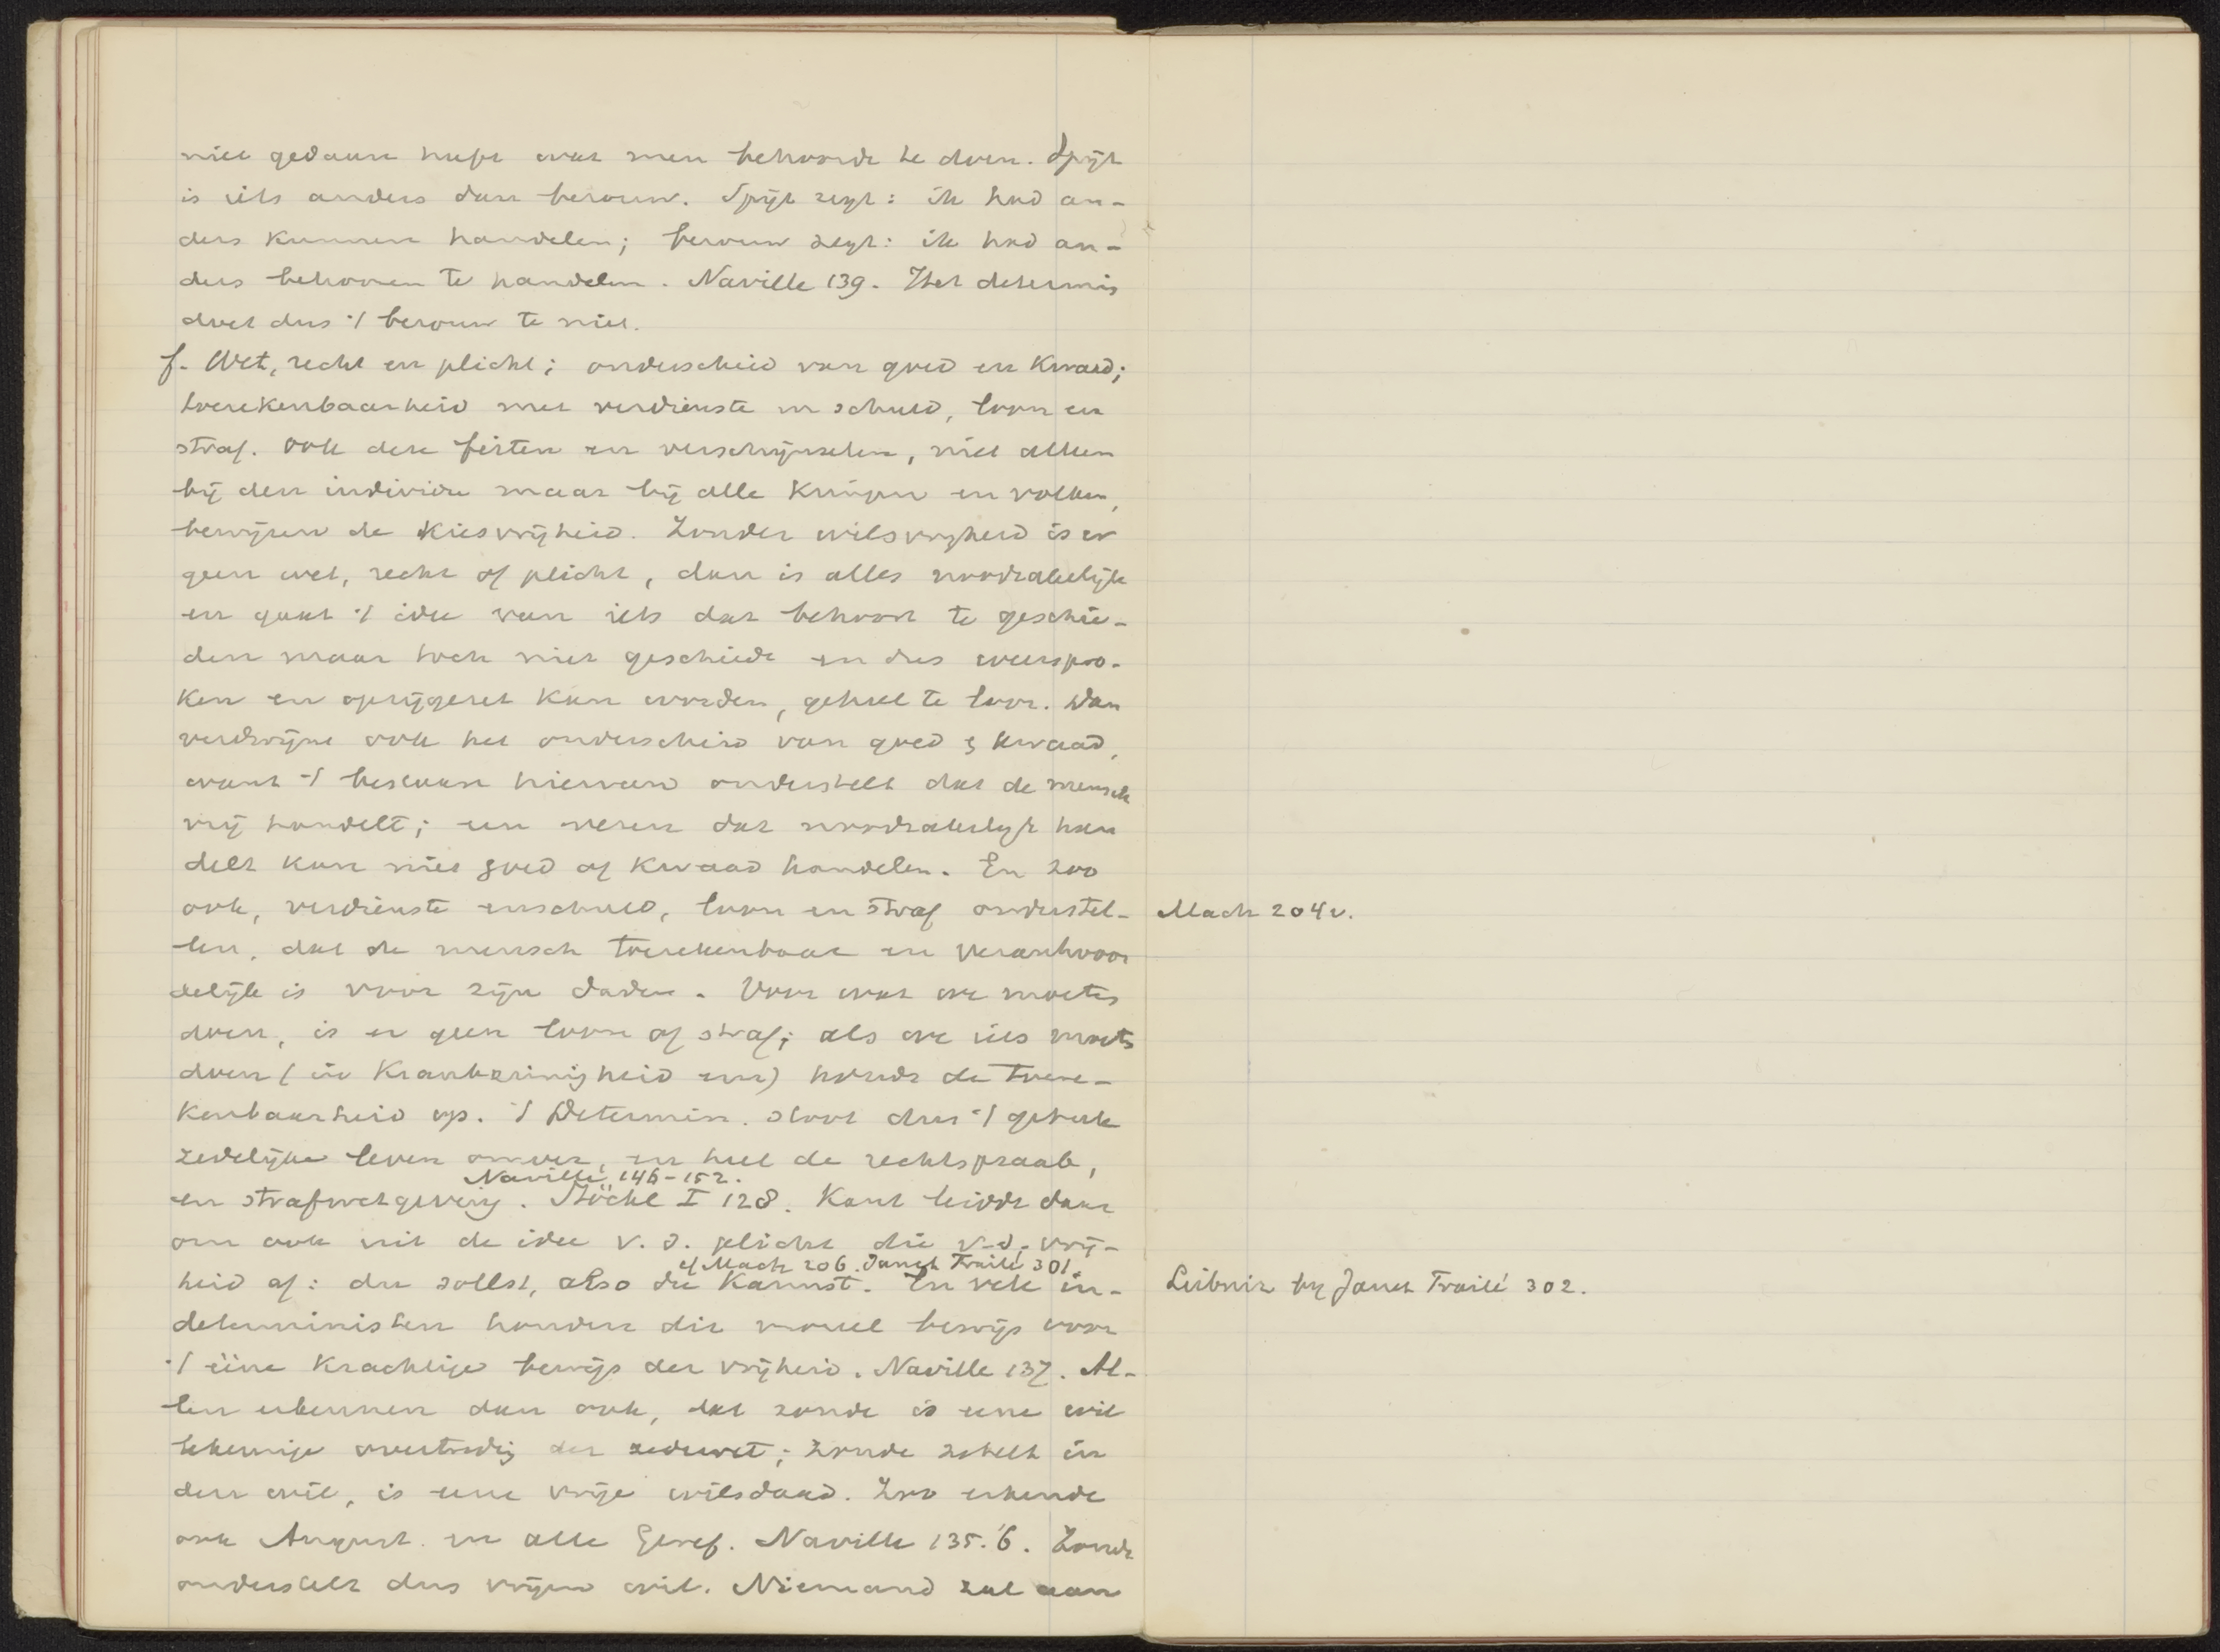 niet gedaan heeft wat men behoorde te doen. Spijt
is iets anders dan berouw. Spijt zegt: ik had an-
ders kunnen handelen; berouw zegt: ik had an-
ders behooren te handelen. Naville 139. Het determin
doet dus 't berouw te niet.
f. Wet, recht en plicht; onderscheid van goed en kwaad;
toerekenbaarheid met verdienste en schuld, loon en
straf. Ook deze feiten en verschijnselen, niet alleen
bij den individu maar bij alle kringen en volken,
bewijzen de kiesvrijheid. Zonder wilsvrijheid is er
geen wet, recht of plicht, dan is alles noodzakelijk
en gaat 't idee van iets dat behoort te geschie-
den maar toch niet geschiedt en dus weerspro-
ken en opzijgezet kan worden, geheel te loor. Dan
verdwijnt ook het onderscheid van goed & kwaad,
want 't bestaan hiervan onderstelt dat de mensch
vrij handelt; een wezen dat noodzakelijk han
delt kan niet goed of kwaad handelen. En zoo
ook, verdienste en schuld, loon en straf onderstel-
len, dat de mensch toerekenbaar en verantwoor
delijk is voor zijn daden. Voor wat we moeten
doen, is er geen loon of straf; als we iets moeten
doen (in krankzinnigheid enz) houdt de toere-
kenbaarheid op. 't Determin. stoot dus 't geheele
zedelijke leven omver, en heel de rechtspraak,
Naville 146-152.
en strafwetgeving. Stöckl I 128. Kant leidde daar
om ook uit de idee v. d. plicht die v.d. vrij-
cf Mach 206. Janet Traité 301.
heid af: du sollst, also du kannst. En vele in-
deterministen houden dit moreel bewijs voor
't eene krachtige bewijs der vrijheid. Naville 137. Al-
len erkennen dan ook, dat zonde is eene wil
lekeurige overtreding der zedewet; zonde zetelt in
den wil, is eene vrije wilsdaad. Zoo erkende
ook August. en alle Geref. Naville 135.'6. Zonde
onderstelt dus vrijen wil. Niemand zal aan
Mach 204v.
Leibniz bij Janet Traité 302.